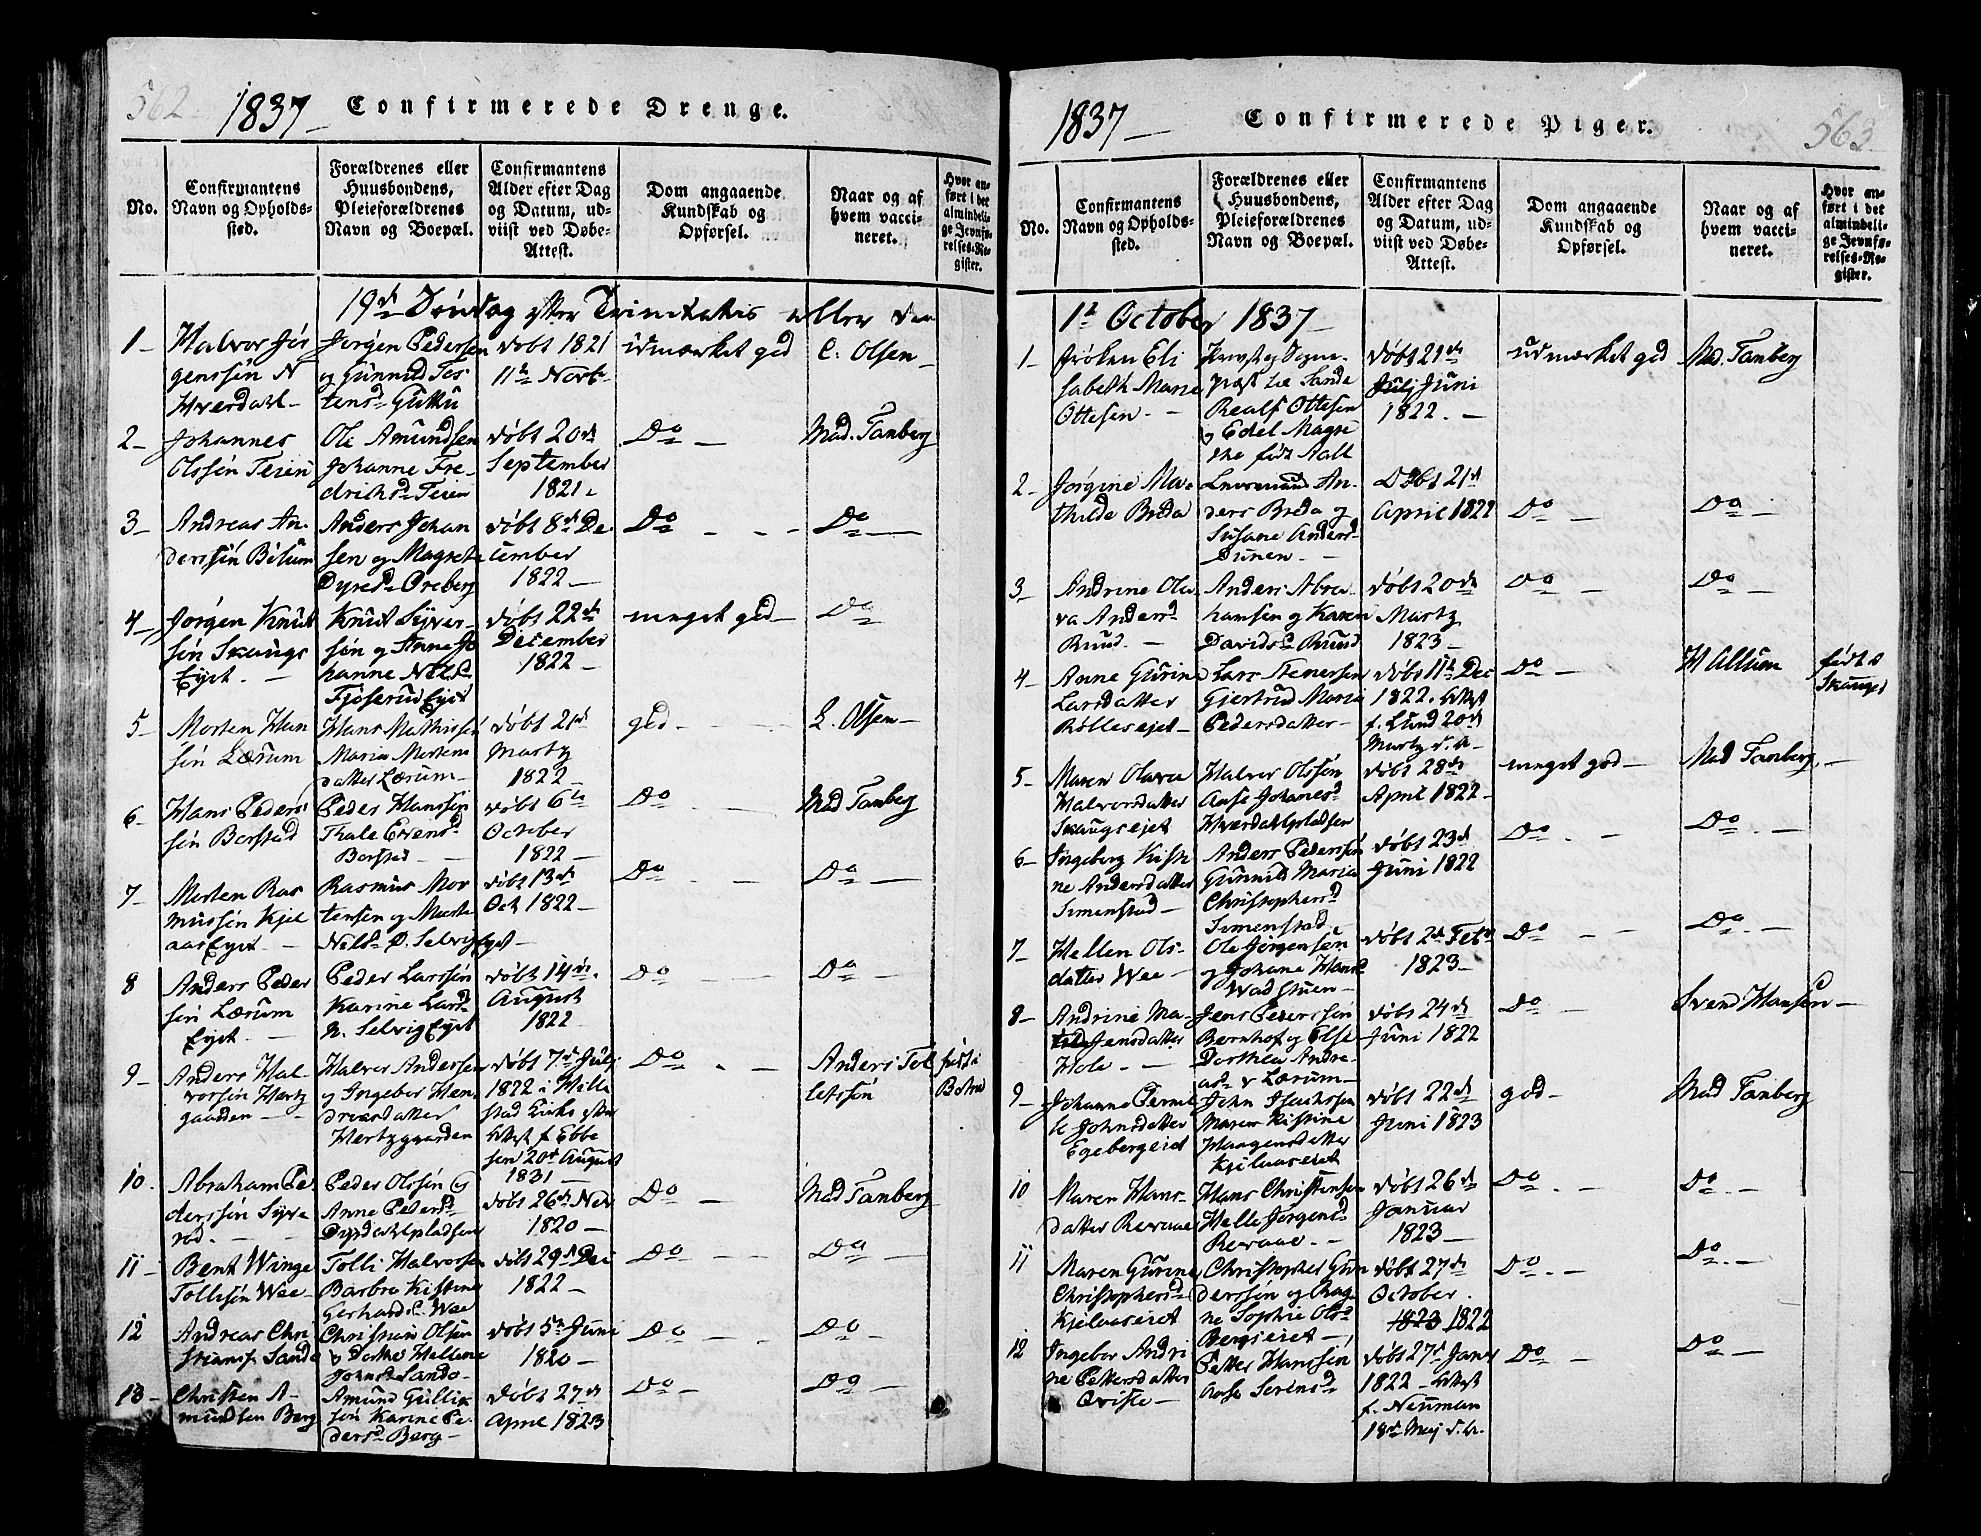 562
1837 Confirmerede Drenge.
No.
Confirmantens
Navn og Opholds-
sted.
Forældrenes eller
Huusbondens,
Pleieforældrenes
Navn og Boepæl.
Confirmantens
Alder efter Dag
og Datum, ud-
viist ved Døbe-
Attest.
Dom angaaende
Kundskab og
Opførsel.
Naar og af
hvem vacci-
neret.
Hvor an-
ført i det
almindeli-
ge Jevnfø-
relses-Re-
gister.
19de Søndag efter Trinitatis eller den
1 -
Halvor Jør
genssøn N
Hverdahl -
Jørgen Pedersen
og Gunnild Tos
tensd. Guttu
døbt 1821
11te Novbr
udmærket god
C. Olsen -
2 -
Johannes
Olssøn Teien
Ole Amundsen
Johanne Fre-
driksd Teien
døbt 20de
September
1821.
Do -
Mad. Tanberg
3 -
Andreas An-
derssøn Bilum
Anders Johan
sen og Magrete
Dyresd. Oreberg
døbt 8de De
cember
1822 -
Do - -
Do -
4 -
Jørgen Knut
søn Skaugs
Eyet. -
Knut Syver-
søn og Anne Jo
hanne Nilsd.
Fjøserud Eyet
døbt 22de
December
1822 -
meget god -
Do
5 -
Morten Han
søn Lærum
Hans Mathissøn
Maria Mortens
datter Lærum -
døbt 2de
Martz
1822 -
god - -
C. Olsen -
6 -
Hans Peders
søn Borstad
Peder Hanssøn
Thale Evensd
Borstad -
døbt 6te
October
1822 -
Do - -
Mad Tanberg
7 -
Morten Ras
mussøn Kjel
aas Eyet. -
Rasmus Mor
tensen og Marte
Nilsd. D. Selvig Eyet -
døbt 13de
Oct 1822 -
Do - -
Do -
8
Anders Peder
søn Lærum
Eyet. -
Peder Larssøn
Karine Larsd
N. Selvig Eyet
døbt 14de.
August
1822 -
Do -
Do -
9 -
Anders Hal-
vorssøn Hertz
gaarden - -
Halvor Anderssen
og Ingebor Hen
dricsdatter
Hertzgaarden
døbt 7de July
1822 i Hille
stad Kirke efter
Attest f. Ebbe
sen 20de August
1831 -
Do - -
Anders Tol
lefssøn
født i
Botne
10.
Abraham Pe
derssøn Syve
rød. - -
Peder Olssøn og
Anne Pedersd
Dyrdahlpladsen
døbt 26de Nov
1820 -
Do -
Mad Tanberg
11 -
Bent Winge
Tollissøn Wee -
Tolli Halvorsen
Barbro Kistine
Gerhardsd. Wee
døbt 29de Dec
1822 -
Do - -
Do -
12
Andreas Chri
stians. Sande
Christian Olsen
og Dorthe Hellene
Johnsd. Sande
døbt 5te Juni
1820 -
Do - -
Do -
13 -
Christen A-
mundsen Berg
Amund Gullik
søn Karine Pe-
dersd. Berg -
Døbt 27de
April 1823
Do -
Do -
1837 - Confirmerede Piger. 563
No.
Confirmantens
Navn og Opholds-
sted.
Forældrenes eller
Huusbondens,
Pleieforældrenes
Navn og Boepæl.
Confirmantens
Alder efter Dag
og Datum, ud-
viist ved Døbe-
Attest.
Dom angaaende
Kundskab og
Opførsel.
Naar og af
hvem vacci-
neret.
Hvor an-
ført i det
almindeli-
ge Jevnfø-
relses-Re-
gister.
1te October 1837 -
1 -
Frøken Eli
sabeth Marie
Ottesen. -
Provst og Sogne-
præst til Sande
Realf Ottesen
og Edel Magre
the født Aall
døbt 21de
July Juni
1822. -
udmærket god
Mad. Tanberg
2 -
Jørgine Ma-
thilde Breda
An-
ders Breda og
Susane Anders
Sunen. -
Døbt 21de
April 1822
Do -
Do -
3 -
Andrine Ola-
va Andersd
Ruud. -
Anders Abra-
hamsen og Karen
Davidsd. Ruud
døbt 20de
Martz
1823 -
Do -
Do -
4 -
Anne Gurine
Larsdatter
Røllesejet -
Lars Stenersen
Giertrud Maria
Pedersdatter -
døbt 11te Dec
1822. Attest
f. Lund 20de
Martz d. A -
Do -
H Allum
født i
Skauger
5 -
Maren Olavia
Halvorsdatter
Skaugsejet
Halvor Olssøn
Aase Johanesd
Hverdahlpladsen
døbt 28de
April 1822 -
meget god -
Mad Tanberg -
6 -
Ingeborg Kisti
ne Andersdatter
Simenstad -
Anders Pederssøn
Gunnild Maria
Christophersd
Simenstad -
døbt 23de
Juni 1822
Do. -
Do. -
7 -
Hellen Ols-
datter Wee -
Ole Jørgensøn
og Johane Hansd
Wadstuen -
døbt 2de Feb
1823 -
Do - -
Do. -
8 -
Andrine Ma-
Jensdatter
Hole - -
Jens Pederssøn
Bernhof og Else
Dorthea Andre-
asd. Lærum -
døbt 24de
Juni 1822
Do -
Svend Hansen -
9 -
Johanne Pernil
le Johnsdatter
Egebergeiet
John Isachssen
Maren Kistine
Haagensdatter
Kjelaaseiet
døbt 22de
Juni 1823
god -
Mad Tanberg
10
Maren Hans-
datter Revaae
Hans Christensen
Helle Jørgensd
Revaae. -
døbt 26de
Januar
1823 -
Do. -
Do. -
11
Maren Gurine
Christophersd
Kjelaaseiet
Christopher Gun
derssøn og Rag
ne Sophie Olsd
Bergseiet -
døbt 27de
October.
1823 1822
Do. -
Do. -
12
Ingebor Andri
ne Pettersdatter
Qviste -
Petter Hanssøn
Aase Sørensd
døbt 27de Janr
1822 - Attest
f. Neuman
18de Maj d. A.
Do - -
Do -